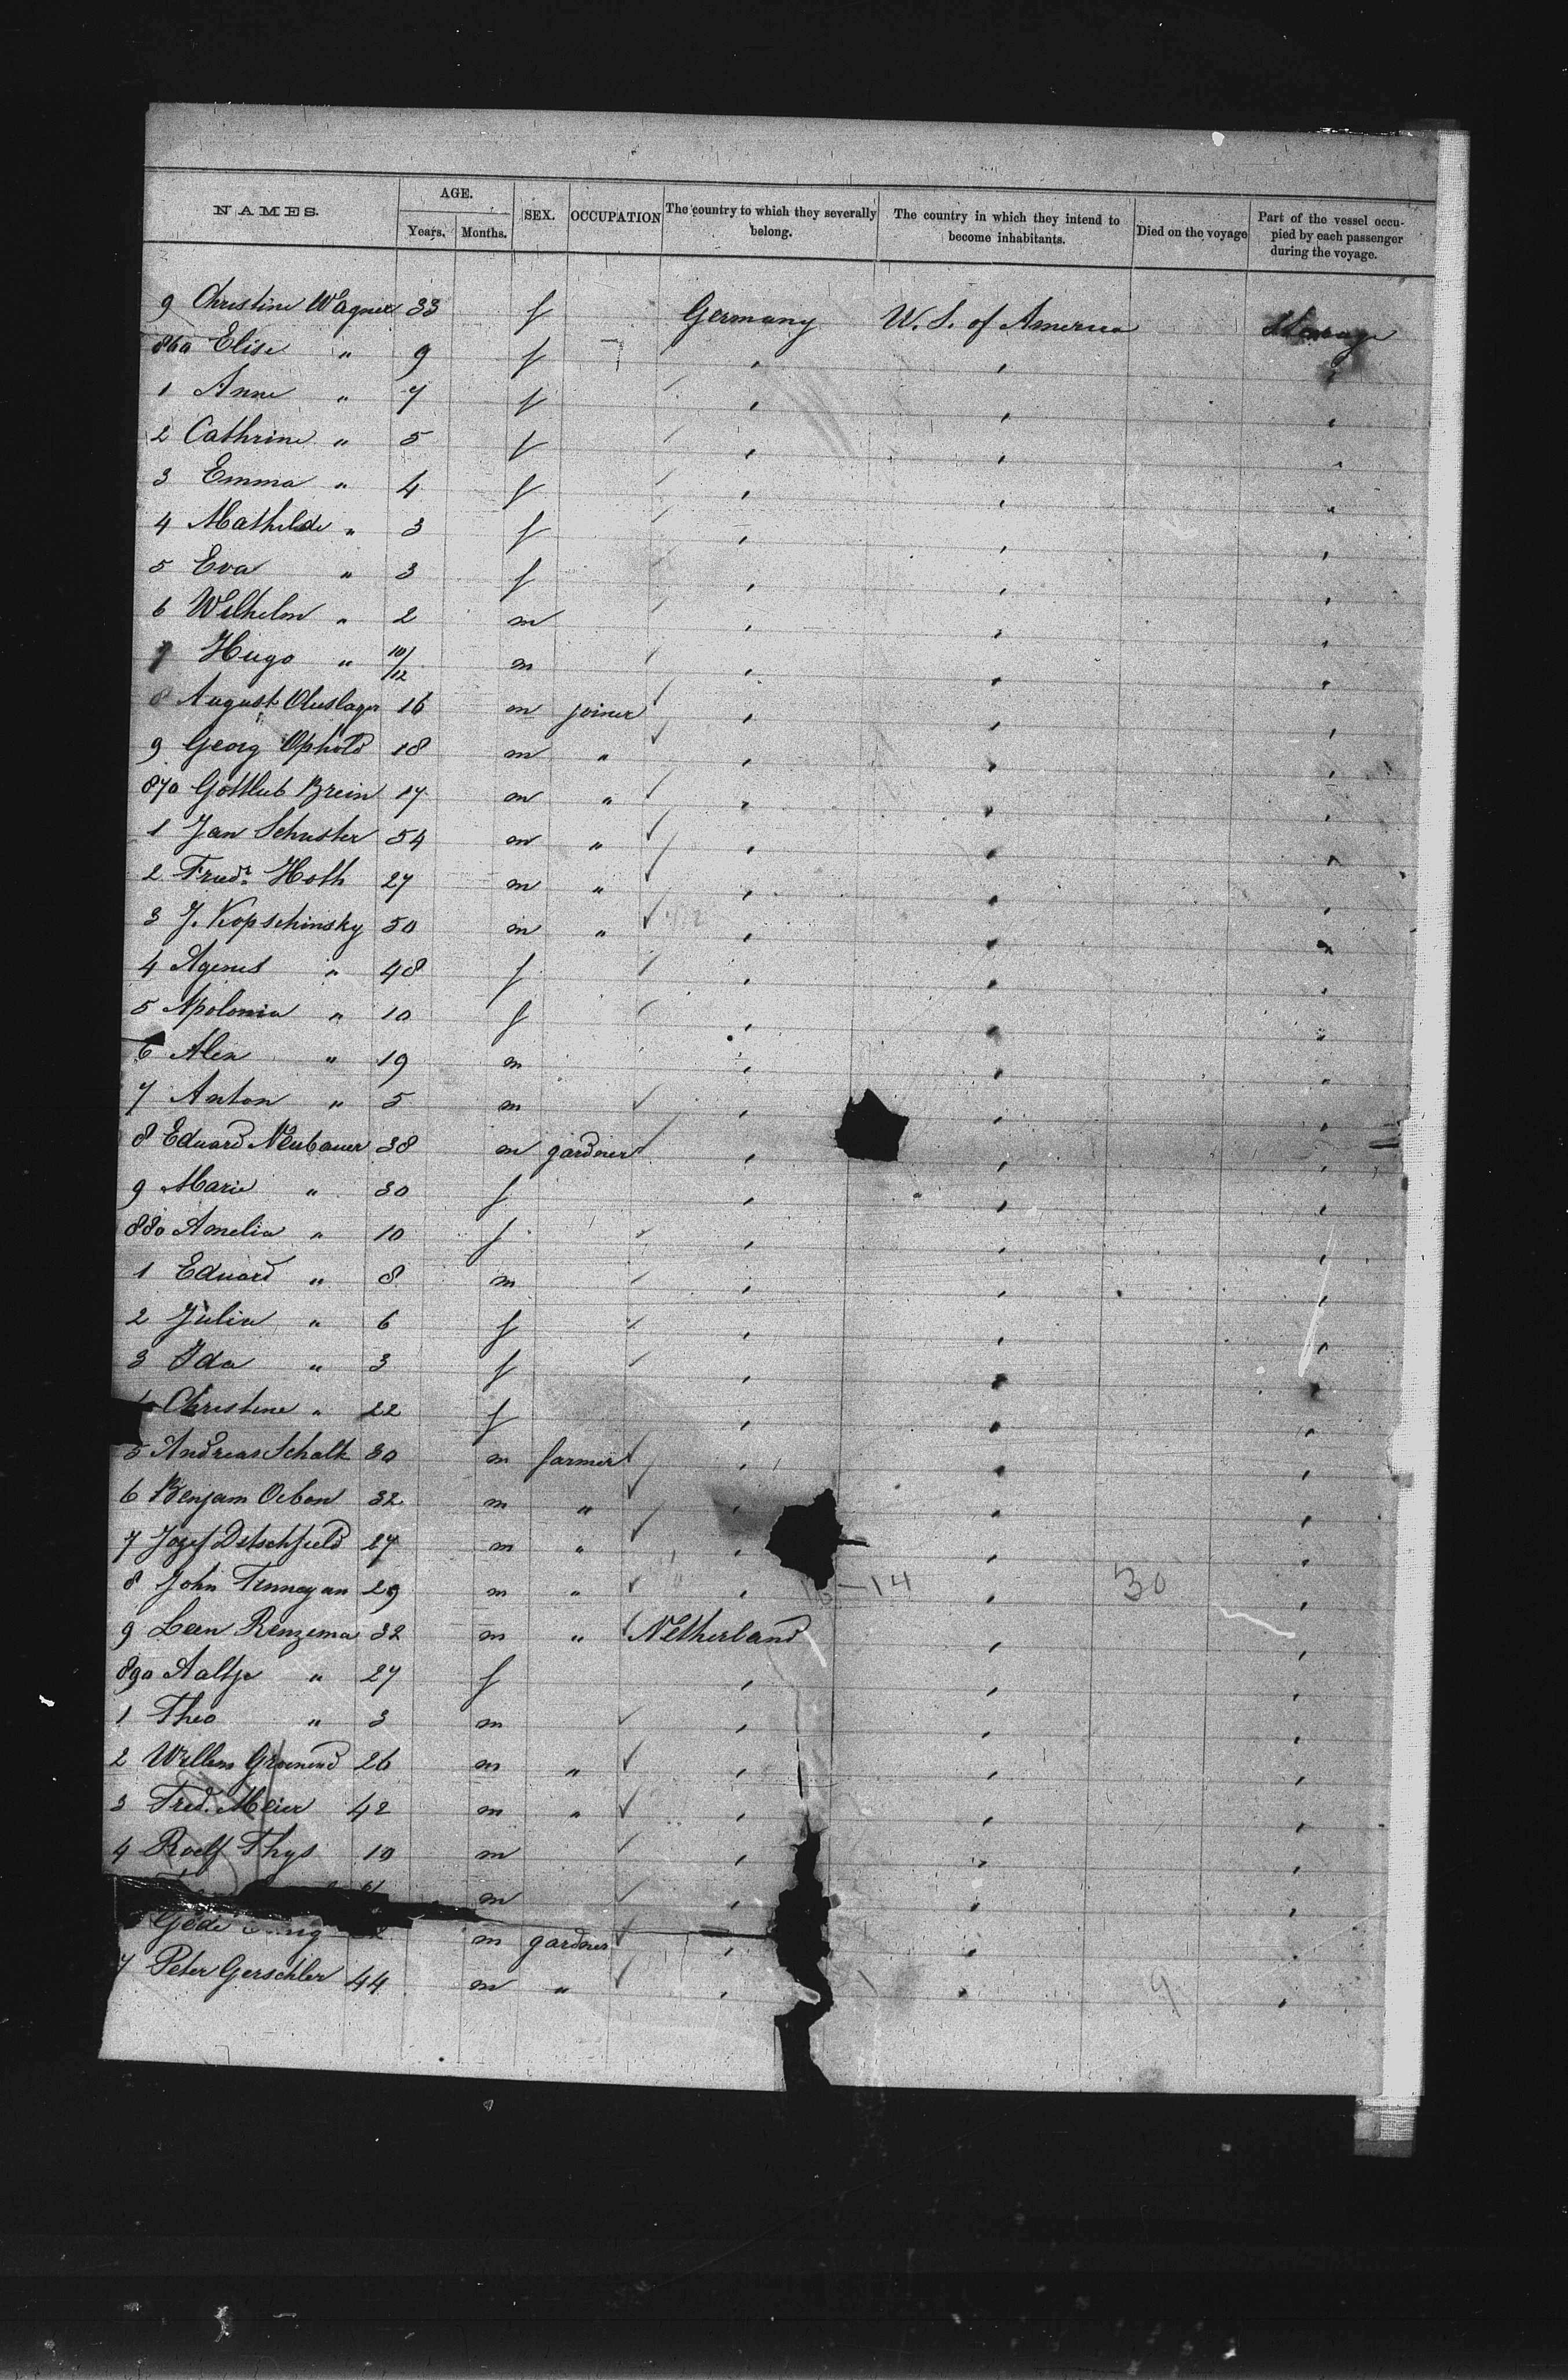 NAMES. AGE. SEX. OCCUPATION The country to which they severally belong. The country in which they intend to become inhabitants. Died on the voyage Part of the vessel occupied by each passenger during the voyage.
Years. Months.
9 Christine Wagner 33 f Germany U.S. of America Steerage
860 Elise " 9 f " " "
1 Anne " 7 f " " "
2 Cathrine " 5 f " " "
3 Emma " 4 f " " "
4 Mathilde " 3 f " " "
5 Eva " 3 f " " "
6 Wilhelm " 2 m " " "
7 Hugo " 10/12 m " " "
8 August 16 m joiner " " "
9 Georg Ophold 18 m " " " "
870 Gottlieb Brein 17 m " " " "
1 Jan Schuster 54 m " " " "
2 Friedr. Hoth 27 m " " " "
3 J. Kopschinsky 50 m " " " "
4 Agenes " 48 f " " "
5 Apolonia " 10 f " " "
6 Alex " 19 m " " "
7 Anton " 5 m " " "
8 Eduard Neubauer 38 m gardner " " "
9 Marie " 30 f " " "
880 Amelia " 10 f " " "
1 Eduard " 8 m " " "
2 Julia " 6 f " " "
3 Ida " 3 f " " "
Christine " 22 f " " "
5 Andreas Schalk 30 m farmer " " "
6 Benjam 32 m " " " "
7 Josef Detschfield 27 m " " " "
8 John Finnegan 29 m " " 14 " 30 "
9 Leen Renzema 32 m " Netherland " "
890 Aaltje " 27 f " " "
1 Theo " 3 m " " "
2 Willem 26 m " " " "
3 Fred. Meier 42 m " " " "
4 Roelf Thys 10 m " " "
m " " "
m gardner " " "
7 Peter Gerschler 44 m " " " 9 "